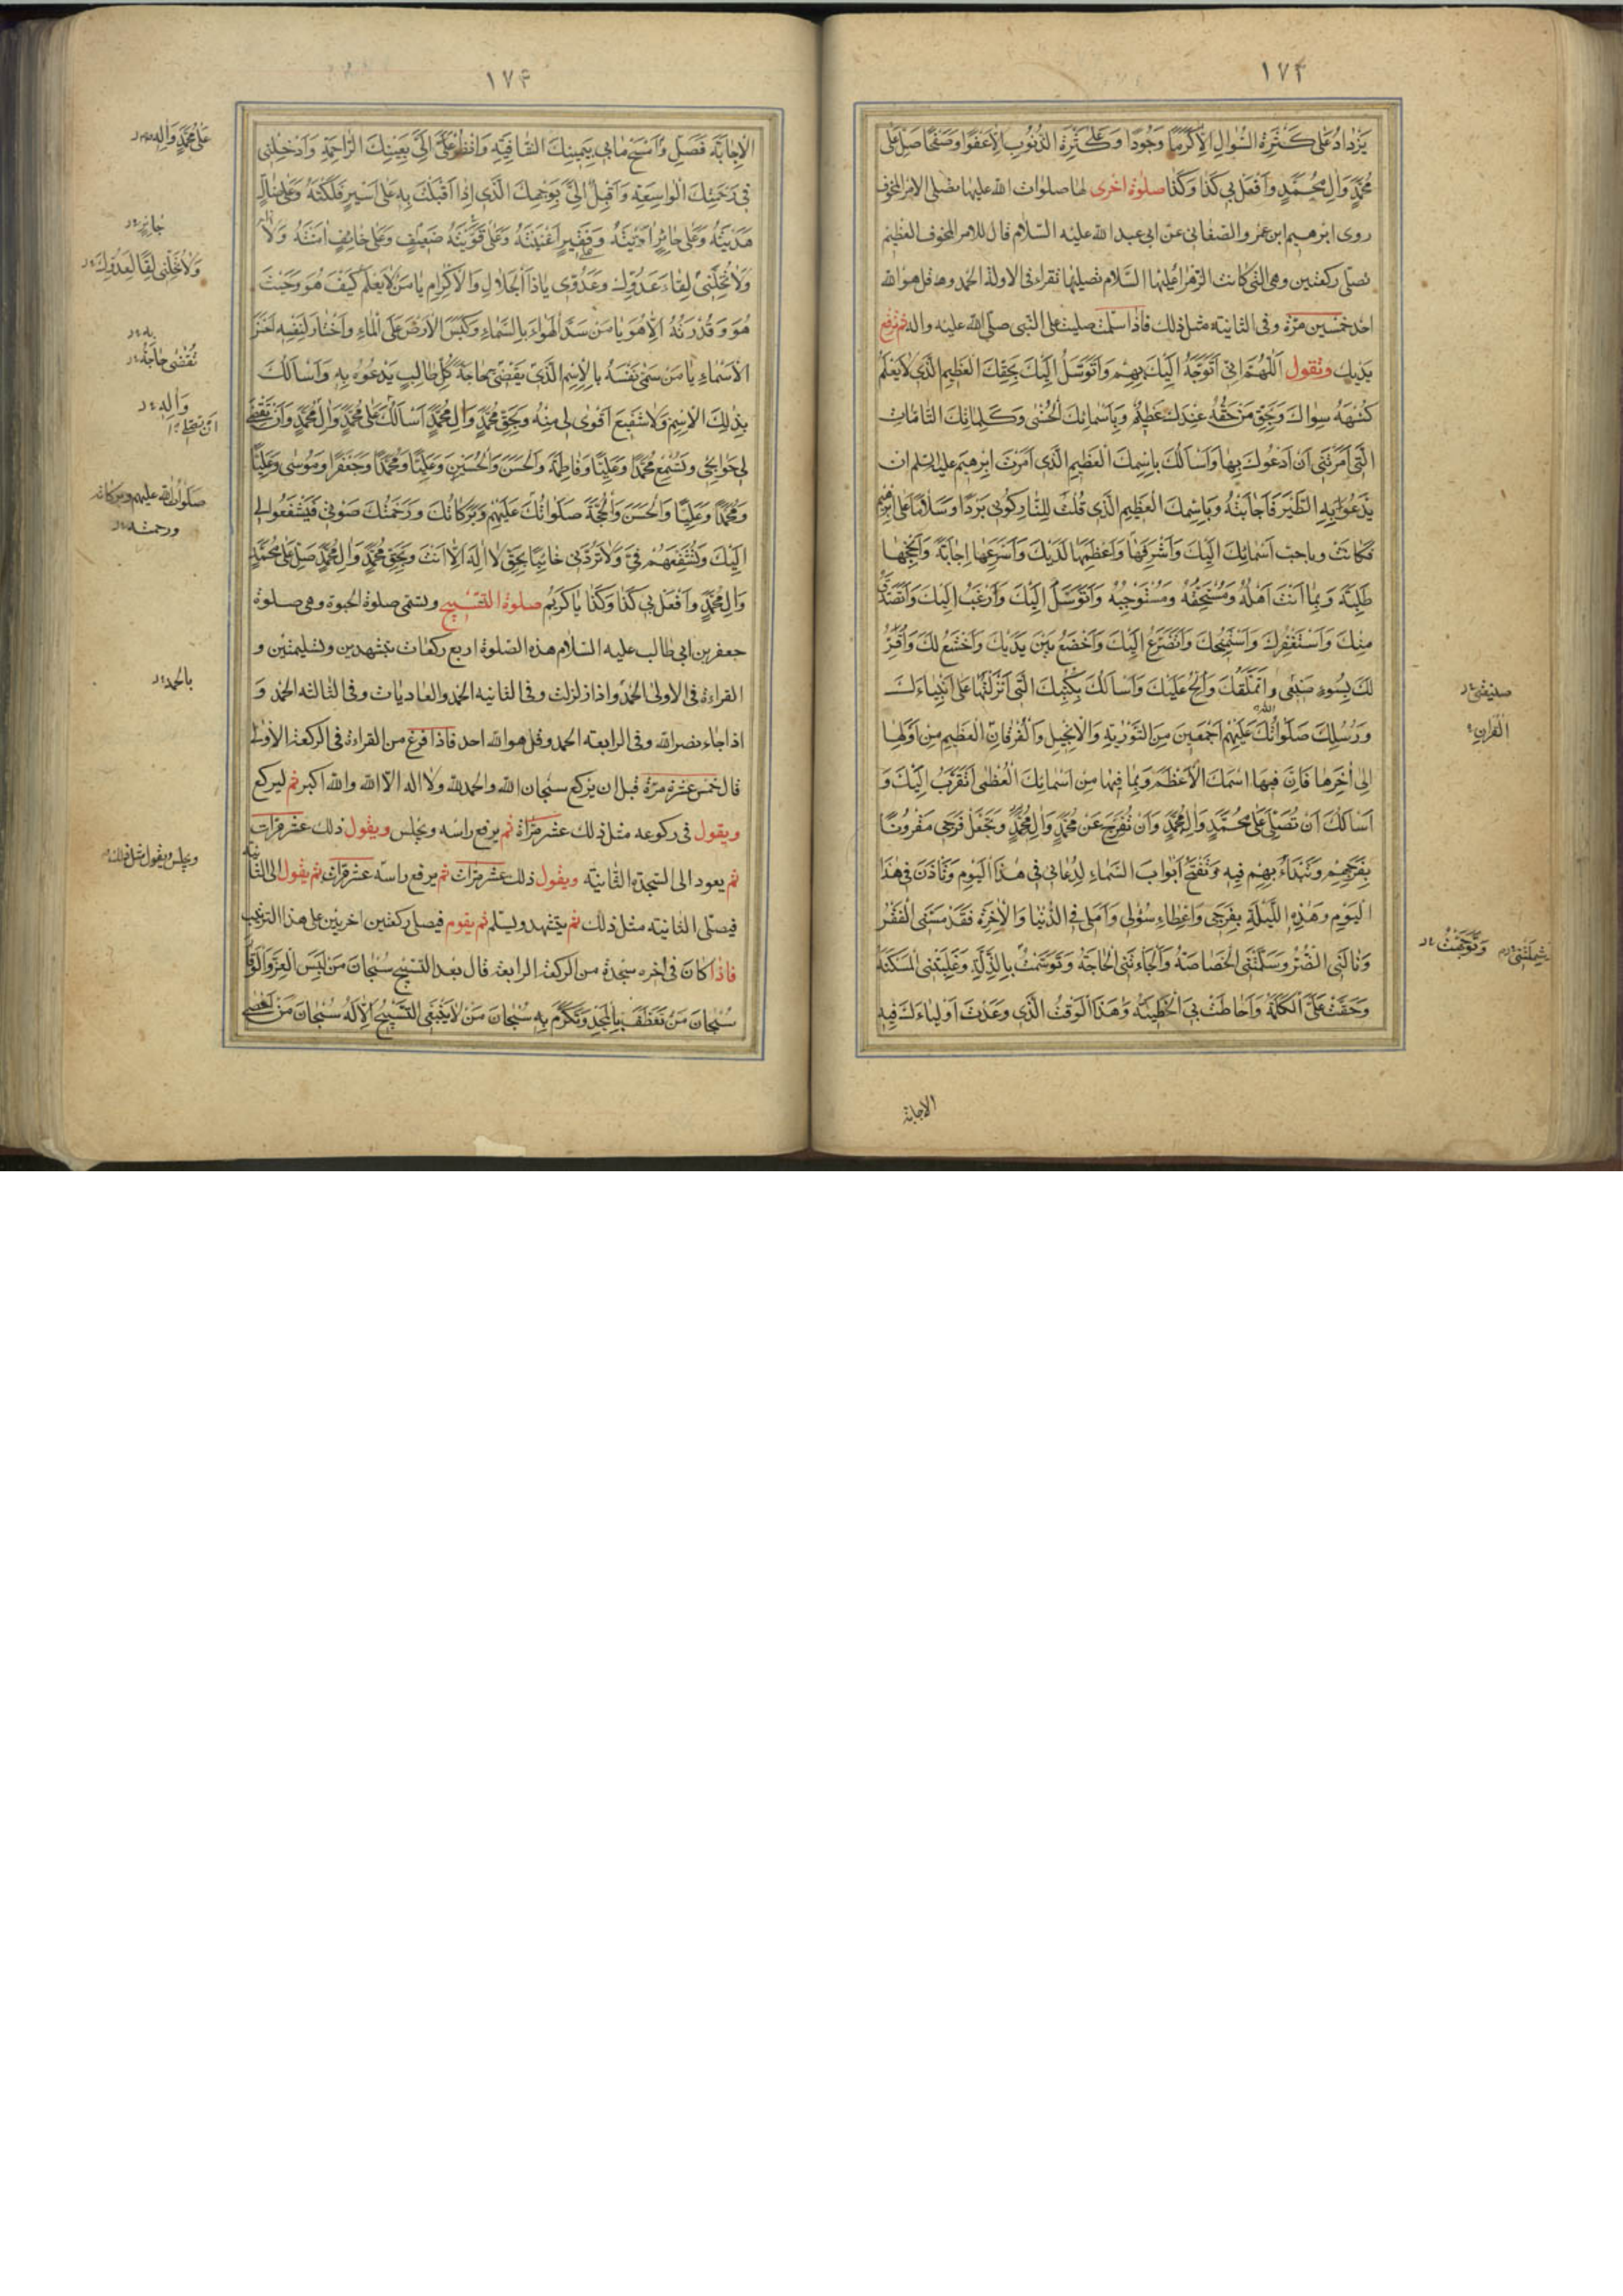 ١٧٣
يَزْدادُ عَلى كَثْرَةِ السُّؤالِ اِلّا كَرَمًا وَجُودًا وَعَلى كَثْرَةِ الذُّنُوبِ اِلّا عَفْوًا وَصَفْحًا صَلِّ عَلى
مُحَمَّدٍ وَالِ مُحَمَّدٍ وَافْعَلْ بي كَذا وَكَذا صلوة اخرى لها صلوات الله عليها تصلى الامر المخوف
روى ابرهيم ابن عمر والصنعانى عن ابى عبد الله عليه السّلام قال للامر المخوف العظيم
تصلى ركعتين وهى التى كانت الزهرا عليها السّلام تصليها تقراء فى الاولة الحمد وقل هو الله
احد خمسين مرّة وفى الثانيته مثل ذلك فاذا سلمت صليت على النبى صلّى الله عليه واله ثم ترفع
يديك وتقول اَللّهُمَّ اِنّى اَتَوَجَّهُ اِلَيْكَ بِهِمْ وَاَتَوَسَّلُ اِلَيْكَ بِحَقِّكَ الْعَظيمِ الَّذى لا يَعْلَمُ
كُنْهَهُ سِواكَ وَبِحَقِّ مَنْ حَقُّهُ عِنْدَكَ عَظيمٌ وَبِاَسْمائِكَ الْحُسْنى وَكَلِماتِكَ التّامّاتِ
الَّتى اَمَرْتَنى اَنْ اَدْعُوكَ بِها وَاَسْاَلُكَ بِاسْمِكَ الْعَظيمِ الَّذى اَمَرْتَ اِبْرهيمَ عليه السلم ان
يَدْعُوَ بِهِ الطَّيْرَ فَاَجابَتْهُ وَبِاسْمِكَ الْعَظيمِ الَّذى قُلْتَ لِلنّارِ كُونى بَرْدًا وَسَلامًا عَلى اِبْرهيمَ
فَكانَتْ وباحب اَسْمائِكَ اِلَيْكَ وَاَشْرَفِها وَاَعْظَمِها لَدَيْكَ وَاَسْرَعِها اِجابَةً وَاَنْجَحِها
طَلِبَةً وَبِما اَنْتَ اَهْلُهُ وَمُسْتَحِقُّهُ وَمُسْتَوْجِبُهُ وَاَتَوَسَّلُ اِلَيْكَ وَاَرْغَبُ اِلَيْكَ وَاَتَصَدَّقُ
مِنْكَ وَاَسْتَغْفِرُكَ وَاَسْتَمْنِحُكَ وَاَتَضَرَّعُ اِلَيْكَ وَاَخْضَعُ بَيْنَ يَدَيْكَ وَاَخْشَعُ لَكَ وَاُقِرُّ
لَكَ بِسُوءِ صَنيعى وَاَتَمَلَّقُكَ وَاُلِحُّ عَلَيْكَ وَاَسْاَلُكَ بِكُتُبِكَ الَّتى اَنْزَلْتَها عَلى اَنْبِياءِكَ
وَرُسُلِكَ صَلَواتُكَ عَلَيْهِمْ اَجْمَعينَ مِنَ التَّوْرية وَالْاِنْجيلِ وَالْفُرْقانِ الْعَظيمِ مِنْ اَوَّلِها
اِلى اخِرِها فَاِنَّ فيهَا اسْمَكَ الْاَعْظَمَ وَبِما فيها مِنْ اَسْمائِكَ الْعُظْمى اَتَقَرَّبُ اِلَيْكَ وَ
اَسْاَلُكَ اَنْ تُصَلِّىَ عَلى مُحَمَّدٍ وَالِ مُحَمَّدٍ وَاَنْ تُفَرِّجَ عَنْ مُحَمَّدٍ وَالِ مُحَمَّدٍ وَتَجْعَلَ فَرَجى مَقْرُونًا
بِفَرَجِهِمْ وَتَبْدَاَ بِهِمْ فيهِ وَتَفْتَحَ اَبْوابَ السَّماءِ لِدُعائى فى هذَا الْيَوْمِ وَتَاْذَنَ فى هذَا
الْيَوْمِ وَهذِهِ اللَّيْلَةِ بِفَرَجى وَاِعْطاءِ سُؤْلى وَاَمَلى فِى الدُّنْيا وَالْاخِرَةِ فَقَدْ مَسَّنِى الْفَقْرُ
وَنالَنِى الضُّرُّ وَسَلَّمَتْنِى الْخَصاصَةُ وَاَلْجَاَتْنِى الْحاجَةُ وَتَوَسَّمْتُ بِالذِّلَّةِ وَغَلَبَتْنِى الْمَسْكَنَةُ
وَحَقَّتْ عَلَىَّ الْكَلِمَةُ وَاَحاطَتْ بِىَ الْخَطيئَةُ وَهذَا الْوَقْتُ الَّذى وَعَدْتَ اَوْلِياءَكَ فيهِ
صنيعتى
القران
شملتنى
الاجابة
١٧٤
الْاِجابَةَ فَصَلِّ وَامْسَحْ ما بى بِيَمينِكَ الشّافِيَةِ وَانْظُرْ اِلَىَّ بِعَيْنِكَ الرّاحِمَةِ وَاَدْخِلْنى
فى رَحْمَتِكَ الْواسِعَةِ وَاَقْبِلْ اِلَىَّ بِوَجْهِكَ الَّذى اِذا اَقْبَلْتَ بِهِ عَلى اَسيرٍ فَكَكْتَهُ وَعَلى ضالٍّ
هَدَيْتَهُ وَعَلى حائِرٍ اَدَّيْتَهُ وَفَقيرٍ اَغْنَيْتَهُ وَعَلى ضَعيفٍ قَوَّيْتَهُ وَعَلى خائِفٍ امَنْتَهُ وَلا
وَلا تُخَلِّنى لِقاءَ عَدُوِّكَ وَعَدُوّى يا ذَا الْجَلالِ وَالْاِكْرامِ يا مَنْ لا يَعْلَمُ كَيْفَ هُوَ وَحَيْثُ
هُوَ وَقُدْرَتَهُ اِلّا هُوَ يا مَنْ سَدَّ الْهَواءَ بِالسَّماءِ وَكَبَسَ الْاَرْضَ عَلَى الْماءِ وَاخْتارَ لِنَفْسِهِ اَحْسَنَ
الْاَسْماءِ يا مَنْ سَمّى نَفْسَهُ بِالْاِسْمِ الَّذى يَقْضى حاجَةَ كُلِّ طالِبٍ يَدْعُوهُ بِهِ وَاَسْاَلُكَ
بِذلِكَ الْاِسْمِ وَلا شَفيعَ اَقْوى لى مِنْهُ وَبِحَقِّ مُحَمَّدٍ وَالِ مُحَمَّدٍ اَسْاَلُكَ عَلى مُحَمَّدٍ وَالِ مُحَمَّدٍ وَاَنْ تَقْضِىَ
لى حَوائِجى وَتُسْمِعَ مُحَمَّدًا وَعَلِيًّا وَفاطِمَةَ وَالْحَسَنَ وَالْحُسَيْنَ وَعَلِيًّا وَمُحَمَّدًا وَجَعْفَرًا وَمُوسى وَعَلِيًّا
وَمُحَمَّدًا وَعَلِيًّا وَالْحَسَنَ وَالْحُجَّةَ صَلَواتُكَ عَلَيْهِمْ وَبَرَكاتُكَ وَرَحْمَتُكَ صَوْتى فَيَشْفَعُوا لى
اِلَيْكَ وَتُشَفِّعَهُمْ فِىَّ وَلا تَرُدَّنى خائِبًا بِحَقِّ لا اِلهَ اِلّا اَنْتَ وَبِحَقِّ مُحَمَّدٍ وَالِ مُحَمَّدٍ صَلِّ عَلى مُحَمَّدٍ
وَالِ مُحَمَّدٍ وَافْعَلْ بى كَذا وَكَذا يا كَريمُ صلوة التسبيح وتسمى صلوة الحبوة وهى صلوة
جعفر بن ابى طالب عليه السّلام هذه الصّلوة اربع ركعات بتشهدين وتسليمتين و
القراءة فى الاولى الحمد واذا زلزلت وفى الثانيه الحمد والعاديات وفى الثالثه الحمد وَ
اذا جاء نصر الله وفى الرابعته الحمد وقل هو الله احد فاذا فرغ من القراءة فى الركعة الاولى
قال خمس عشرة مرّة قبل ان يركع سبحان الله والحمد لله ولا اله الّا الله والله اكبر ثم ليركع
ويقول فى ركوعه مثل ذلك عشر مرّاة ثم يرفع راسه ويجلس ويقول ذلك عشر مرّات
ثم يعود الى السّجدة الثّانيتة ويقول ذلك عشر مرّات ثم يرفع راسه عشر مرّات ثم يقول الى الثّانيه
فيصلّى الثانيته مثل ذلك ثم يتشهد ويسلم ثم يقوم فيصلى ركعتين اخريين على هذا الترتيب
فاذا كان فى اخره سجدة من الركعة الرابعة قال بعد التسبيح سُبْحانَ مَنْ لَبِسَ الْعِزَّ وَالْوَقارَ
سُبْحانَ مَنْ تَعَطَّفَ بِالْمَجْدِ وَتَكَرَّمَ بِهِ سُبْحانَ مَنْ لا يَنْبَغى التَّسْبيحُ اِلّا لَهُ سُبْحانَ مَنْ اَحْصى
عَلى مُحَمَّدٍ وَالِه
وَلا تُخَلِّنى لِقا لِعَدُوِّكَ
به
تُقْضى حاجَةُ
وَاله
ان تقضى
صلوات الله عليهم وبركاته
ورحمته
بالحمد
ويجلس ويقول مثل ذلك